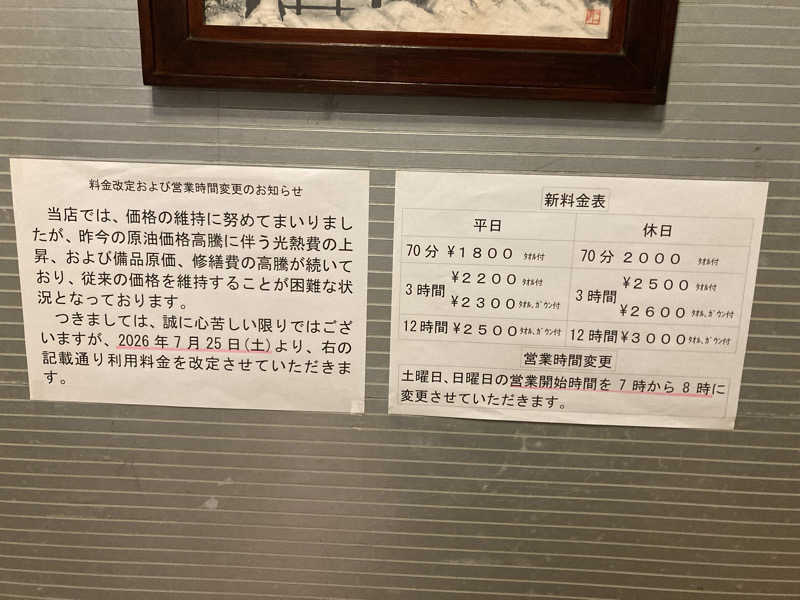 料金改定および営業時間変更のお知らせ
当店では、価格の維持に努めてまいりまし
たが、昨今の原油価格高騰に伴う光熱費の上
昇、および備品原価、修繕費の高騰が続いて
おり、従来の価格を維持することが困難な状
況となっております。
つきましては、誠に心苦しい限りではござ
いますが、2026年7月25日(土)より、右の
記載通り利用料金を改定させていただきま
す。
新料金表
平日 休日
70分 ¥1800 ﾀｵﾙ付 70分 2000 ﾀｵﾙ付
3時間 ¥2200 ﾀｵﾙ付 3時間 ¥2500 ﾀｵﾙ付
¥2300 ﾀｵﾙ、ｶﾞｳﾝ付 ¥2600 ﾀｵﾙ、ｶﾞｳﾝ付
12時間 ¥2500 ﾀｵﾙ、ｶﾞｳﾝ付 12時間 ¥3000 ﾀｵﾙ、ｶﾞｳﾝ付
営業時間変更
土曜日、日曜日の営業開始時間を7時から8時に
変更させていただきます。